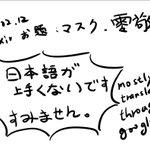 お題:マスク.霊
日本語が
上手くないです
すみません。
mostly
transla
through
google